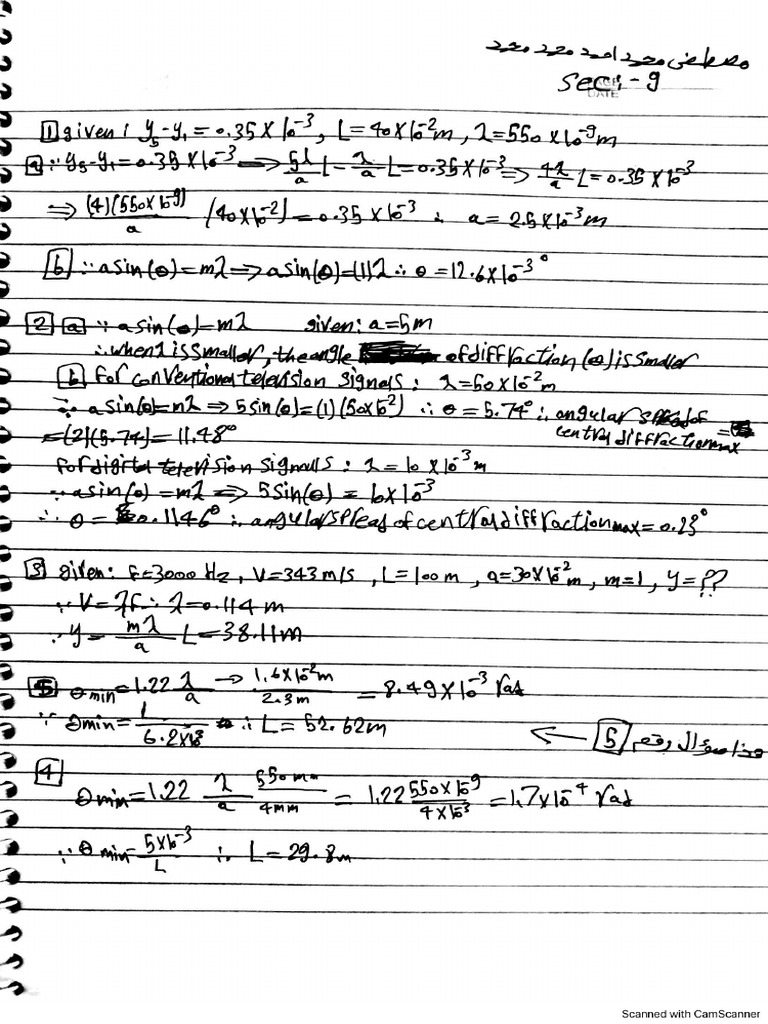 مصطفى محمد احمد محمد محمد
sec:- 9
PAGE
DATE
1 given: y₅-y₁=0.35×10⁻³, L=40×10⁻²m, λ=550×10⁻⁹m
a ∵ y₅-y₁=0.35×10⁻³ ⟹ 5λ/a L - λ/a L=0.35×10⁻³ ⟹ 4λ/a L=0.35×10⁻³
⟹ (4)(550×10⁻⁹)/a (40×10⁻²)=0.35×10⁻³ ∴ a=2.5×10⁻³m
b ∵ a sin(θ)=mλ ⟹ a sin(θ)=(1)λ ∴ θ=12.6×10⁻³°
2 a ∵ a sin(θ)=mλ given: a=5m
∴ when λ is smaller, the angle of diffraction (θ) is smaller
b for conventional television signals: λ=50×10⁻²m
∵ a sin(θ)=mλ ⟹ 5sin(θ)=(1)(50×10⁻²) ∴ θ=5.74° ∴ angular spread of central diffraction max
=(2)(5.74)=11.48°
for digital television signals: λ=10×10⁻³m
∵ a sin(θ)=mλ ⟹ 5sin(θ)=10×10⁻³
∴ θ=0.1146° ∴ angular spread of central diffraction max=0.23°
3 given: f=3000 Hz, V=343 m/s, L=100m, a=30×10⁻²m, m=1, y=??
∵ V=λf ∴ λ=0.114 m
∵ y=mλ/a L=38.11m
5 θmin=1.22 λ/a → 1.6×10⁻²m/2.3m =8.49×10⁻³ rad
∵ θmin=L/6.2×10³ ∴ L=52.62m
هذا سؤال رقم 5 ←
4
θmin=1.22 λ/a 550nm/4mm =1.22 550×10⁻⁹/4×10⁻³ =1.7×10⁻⁴ rad
∵ θmin=5×10⁻³/L ∴ L=29.8m
Scanned with CamScanner